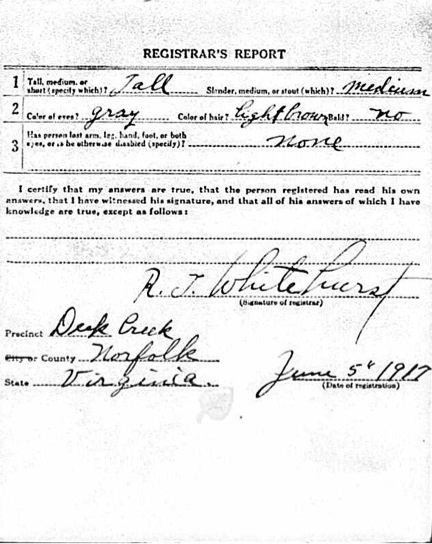 REGISTRAR'S REPORT
1 Tall, medium, or short (specify which)? Tall Slender, medium, or stout (which)? medium
2 Color of eyes? gray Color of hair? light brown Bald? no
3 Has person lost arm, leg, hand, foot, or both eyes, or is he otherwise disabled (specify)? none
I certify that my answers are true, that the person registered has read his own
answers, that I have witnessed his signature, and that all of his answers of which I have
knowledge are true, except as follows:
R. J. Whitehurst
(Signature of registrar)
Precinct Deep Creek
City or County Norfolk
State Virginia.
June 5" 1917
(Date of registration)